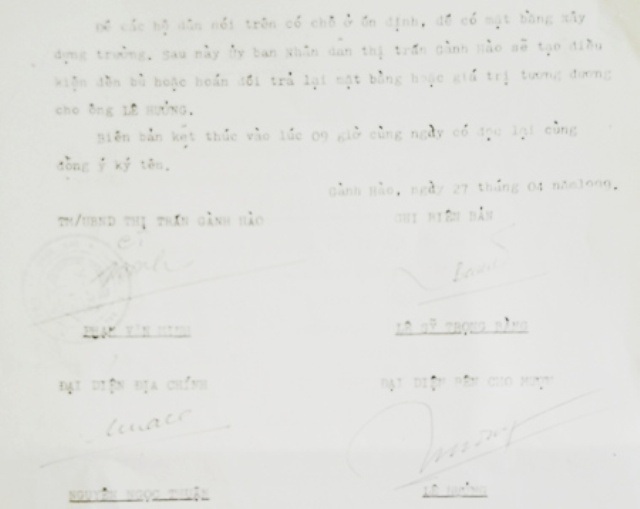 Để các hộ dân nói trên có chỗ ở ổn định, để có mặt bằng xây
dựng trường. Sau này Ủy ban Nhân dân thị trấn Gành Hào sẽ tạo điều
kiện đền bù hoặc hoán đổi trả lại mặt bằng hoặc giá trị tương đương
cho ông LÊ HƯỞNG.
Biên bản kết thúc vào lúc 09 giờ cùng ngày có đọc lại cùng
đồng ý ký tên.
Gành Hào, ngày 27 tháng 04 năm
TM/UBND THỊ TRẤN GÀNH HÀO
GHI BIÊN BẢN
PHAN VĂN
LÊ SỸ TRỌNG
ĐẠI DIỆN ĐỊA CHÍNH
ĐẠI DIỆN BÊN CHO MƯỢN
NGUYỄN NGỌC THUẬN
LÊ HƯỞNG